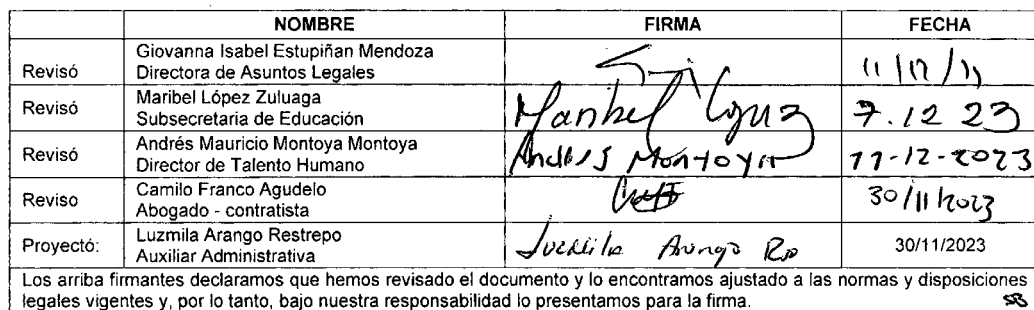 NOMBRE FIRMA FECHA
Giovanna Isabel Estupiñan Mendoza
Revisó Directora de Asuntos Legales
Maribel López Zuluaga
Revisó Subsecretaria de Educación Maribel 7.12 23
Andrés Mauricio Montoya Montoya
Revisó Director de Talento Humano Andrés Montoya 11-12-2023
Camilo Franco Agudelo
Reviso Abogado - contratista 30/11/2023
Luzmila Arango Restrepo
Proyectó: Auxiliar Administrativa Luzmila Arango 30/11/2023
Los arriba firmantes declaramos que hemos revisado el documento y lo encontramos ajustado a las normas y disposiciones
legales vigentes y, por lo tanto, bajo nuestra responsabilidad lo presentamos para la firma.